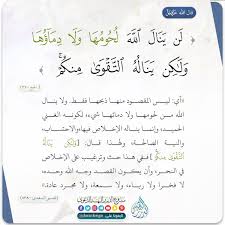 قال الله ﷻ
لَن يَنَالَ اللَّهَ لُحُومُهَا وَلَا دِمَاؤُهَا
وَلَٰكِن يَنَالُهُ التَّقْوَىٰ مِنكُمْ ۚ
«أي: ليس المقصود منها ذبحها فقط. ولا ينال
الله من لحومها ولا دمائها شيء، لكونه الغني
الحميد، وإنما يناله الإخلاص فيها والاحتساب،
والنية الصالحة، ولهذا قال: {وَلَكِنْ يَنَالُهُ
التَّقْوَى مِنْكُمْ} ففي هذا حث وترغيب على الإخلاص
في النحر، وأن يكون القصد وجه الله وحده،
لا فخرا ولا رياء، ولا سمعة، ولا مجرد عادة.»